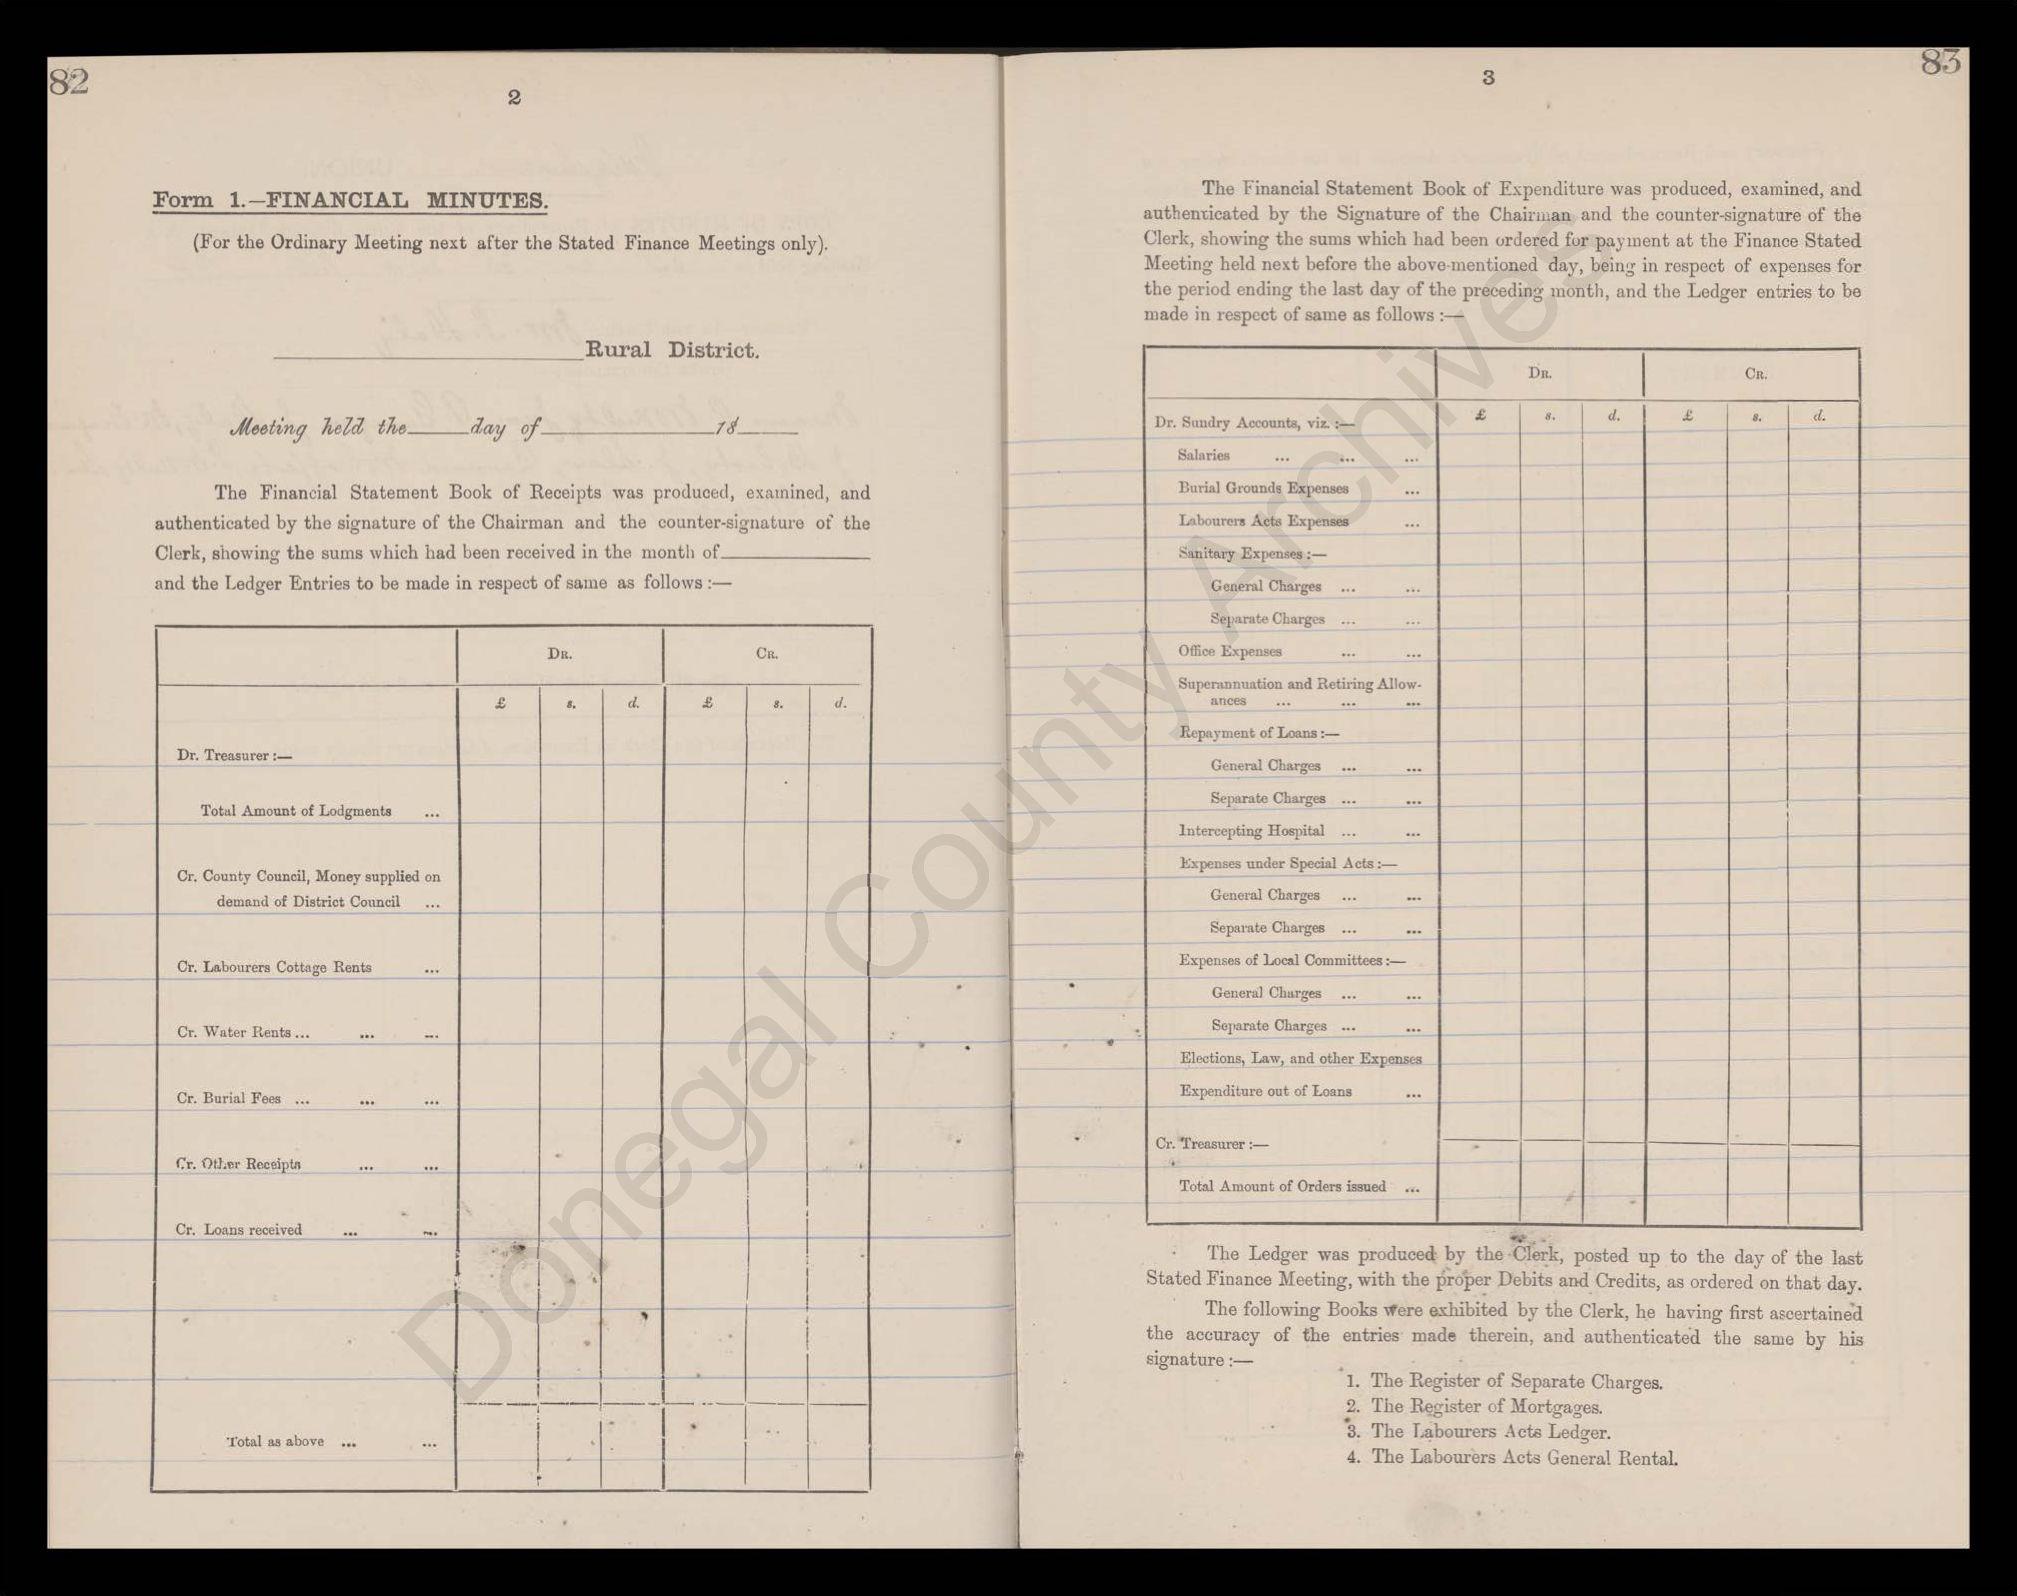 82
2
Form 1.—FINANCIAL MINUTES.
(For the Ordinary Meeting next after the Stated Finance Meetings only).
Rural District.
Meeting held the____day of____18____
The Financial Statement Book of Receipts was produced, examined, and
authenticated by the signature of the Chairman and the counter-signature of the
Clerk, showing the sums which had been received in the month of
and the Ledger Entries to be made in respect of same as follows :—
DR. CR.
£ s. d. £ s. d.
Dr. Treasurer :—
Total Amount of Lodgments ...
Cr. County Council, Money supplied on
demand of District Council ...
Cr. Labourers Cottage Rents ...
Cr. Water Rents ... ... ...
Cr. Burial Fees ... ... ...
Cr. Other Receipts ... ...
Cr. Loans received ... ...
Total as above ... ...
83
3
The Financial Statement Book of Expenditure was produced, examined, and
authenticated by the Signature of the Chairman and the counter-signature of the
Clerk, showing the sums which had been ordered for payment at the Finance Stated
Meeting held next before the above-mentioned day, being in respect of expenses for
the period ending the last day of the preceding month, and the Ledger entries to be
made in respect of same as follows :—
DR. CR.
£ s. d. £ s. d.
Dr. Sundry Accounts, viz. :—
Salaries ... ... ...
Burial Grounds Expenses ...
Labourers Acts Expenses ...
Sanitary Expenses :—
General Charges ... ...
Separate Charges ... ...
Office Expenses ... ...
Superannuation and Retiring Allow-
ances ... ... ...
Repayment of Loans :—
General Charges ... ...
Separate Charges ... ...
Intercepting Hospital ... ...
Expenses under Special Acts :—
General Charges ... ...
Separate Charges ... ...
Expenses of Local Committees :—
General Charges ... ...
Separate Charges ... ...
Elections, Law, and other Expenses
Expenditure out of Loans ...
Cr. Treasurer :—
Total Amount of Orders issued ...
The Ledger was produced by the Clerk, posted up to the day of the last
Stated Finance Meeting, with the proper Debits and Credits, as ordered on that day.
The following Books were exhibited by the Clerk, he having first ascertained
the accuracy of the entries made therein, and authenticated the same by his
signature :—
1. The Register of Separate Charges.
2. The Register of Mortgages.
3. The Labourers Acts Ledger.
4. The Labourers Acts General Rental.
Donegal County Archives